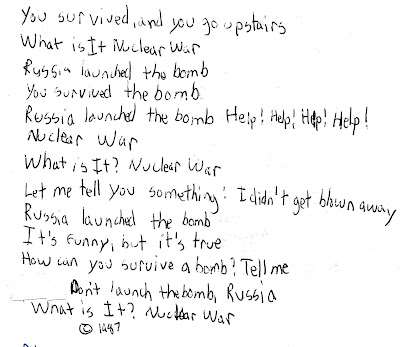 You survived, and you go upstairs
What is It Nuclear War
Russia launched the bomb
You survived the bomb
Russia launched the bomb Help! Help! Help! Help!
Nuclear War
What is It? Nuclear War
Let me tell you something! I didn't get blown away
Russia launched the bomb
It's Funny, but it's true
How can you survive a bomb? Tell me
Don't launch the bomb, Russia
What is It? Nuclear War
© 1987